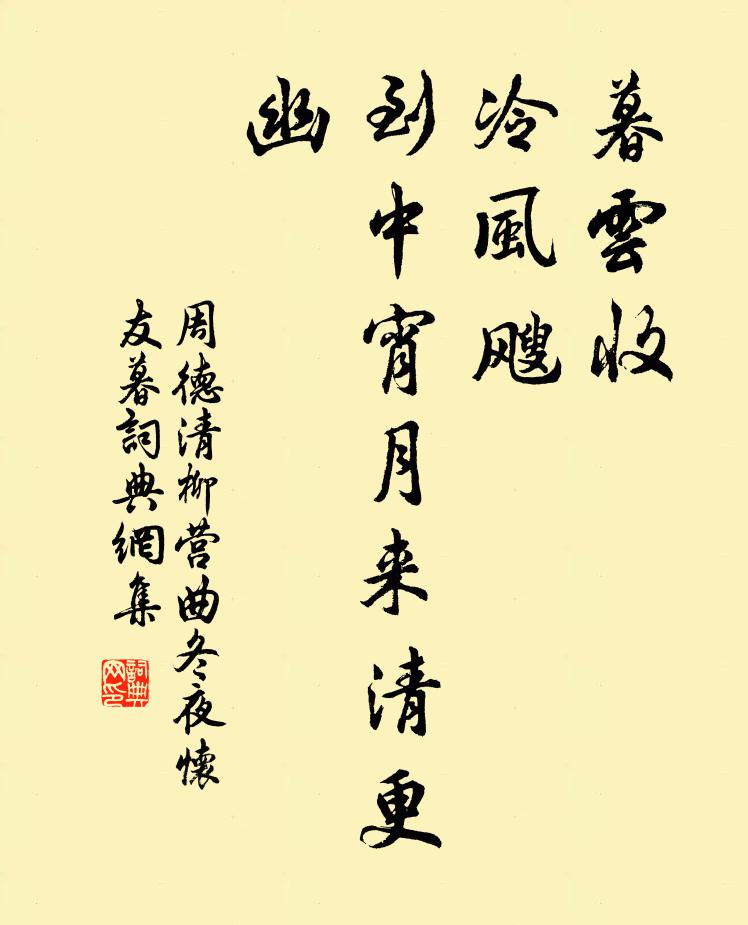 暮雲收
冷風颼
到中宵月来清更
幽
周德清柳营曲冬夜懷
友暮詞典網集
詞典
网印